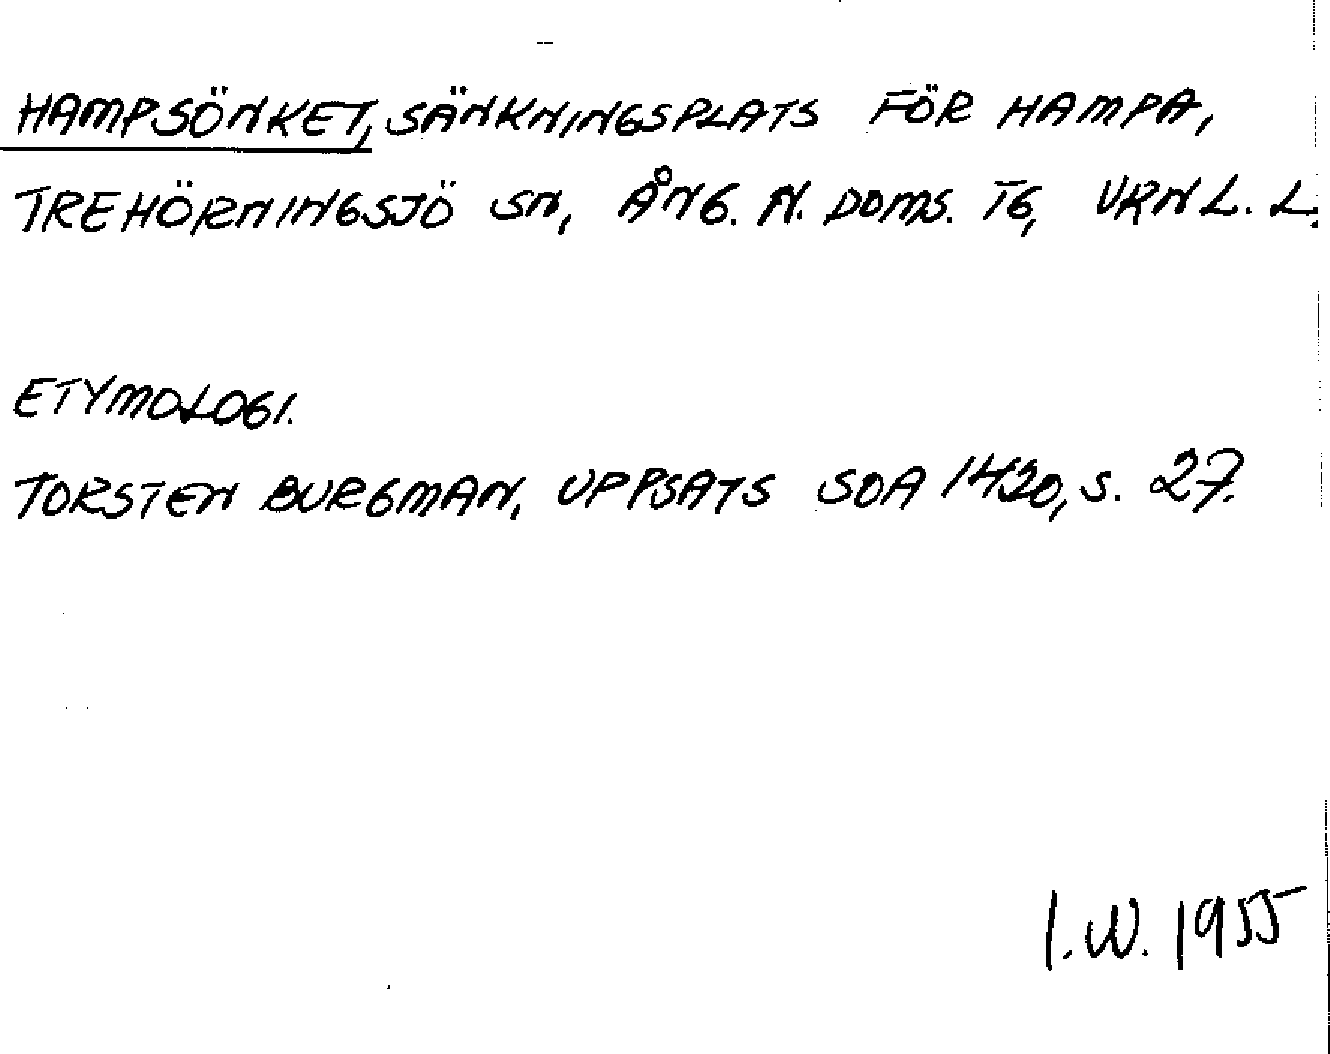 HAMPSÖNKET, SÄNKNINGSPLATS FÖR HAMPA,
TREHÖRNINGSJÖ SN, ÅNG. N. DOMS. TG, VRNL. L.
ETYMOLOGI.
TORSTEN BURGMAN, UPPSATS SOA 1420, S. 27.
I.W. 1955